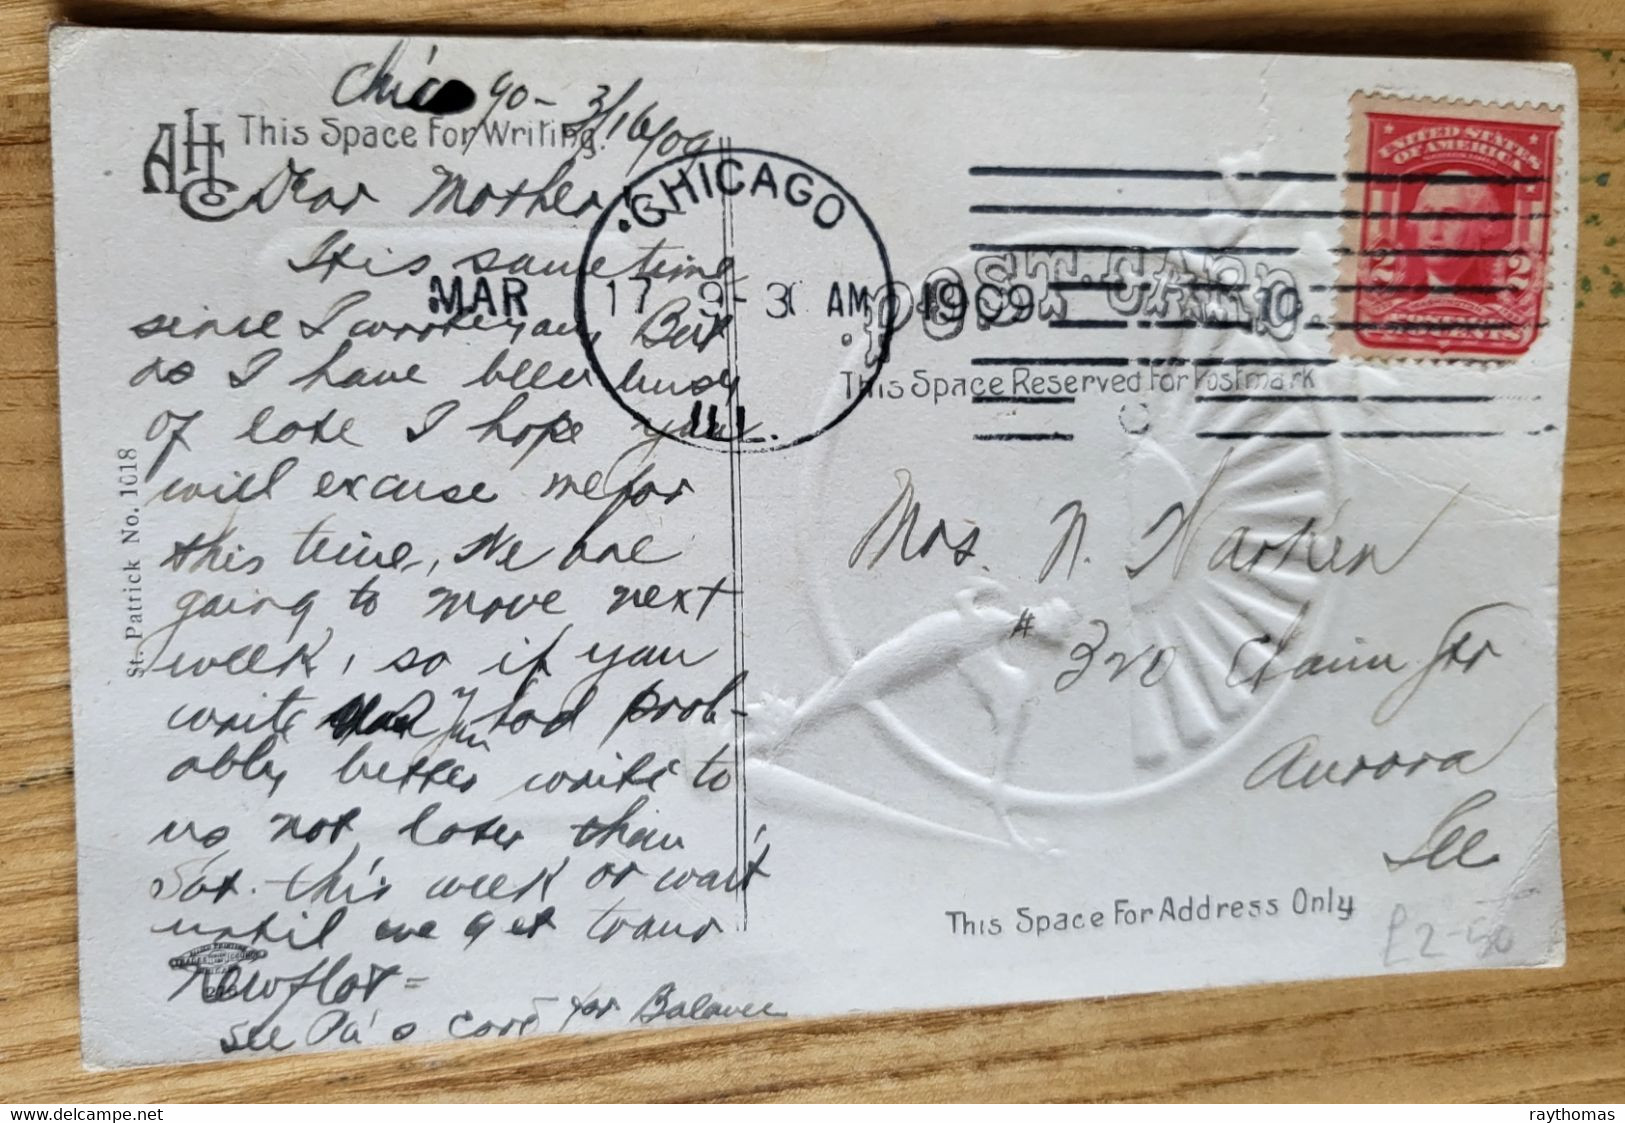 Chicago - 3/16/09
AHCo
This Space For Writing.
Dear Mother,
It is some time
since I wrote you, But
as I have been busy
of late I hope you
will excuse me for
this time, We are
going to move next
week, so if you
write you had prob-
ably better write to
us not later than
Sat. this week or wait
until we get to our
New flat =
See Pa's card for Balance
St. Patrick No. 1018
CHICAGO
MAR 17 9-30 AM 1909
ILL.
10
UNITED STATES
OF AMERICA
2 2
POST CARD.
This Space Reserved For Postmark
Mrs. N.
# 320
Aurora
Ill
This Space For Address Only
£2-50
raythomas